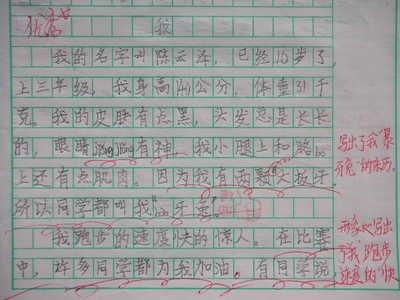 我
我的名字叫陈云泽，已经10岁了，
上三年级。我身高141公分，体重31千
克。我的皮肤有点黑，头发总是长长
的，眼睛jiǒngjiǒng有神。我小腿上和
上还有点肌肉。因为我有两颗大板牙，
所以同学都叫我
我跑步的速度快的惊人。在比赛
中，许多同学都为我加油，有同学说
写出了我"暴
的来历。
写出
了我"跑步
速度"的"快